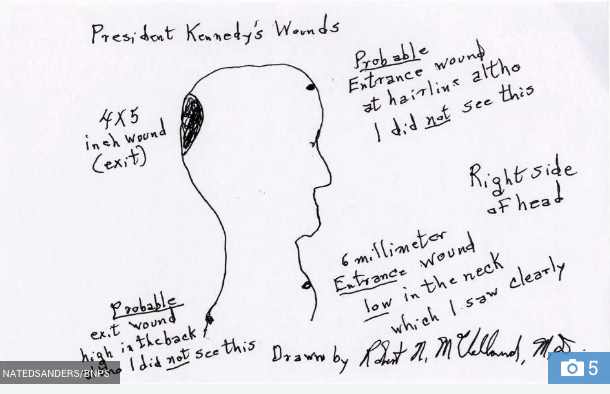 President Kennedy's Wounds
Probable
Entrance wound
at hairline altho
I did not see this
4X5
inch wound
(exit)
Right side
of head
6 millimeter
Entrance wound
low in the neck
which I saw clearly
Probable
exit wound
high in the back
altho I did not see this
Drawn by Robert N. McClelland, M.D.
NATEDSANDERS/BNPS
5